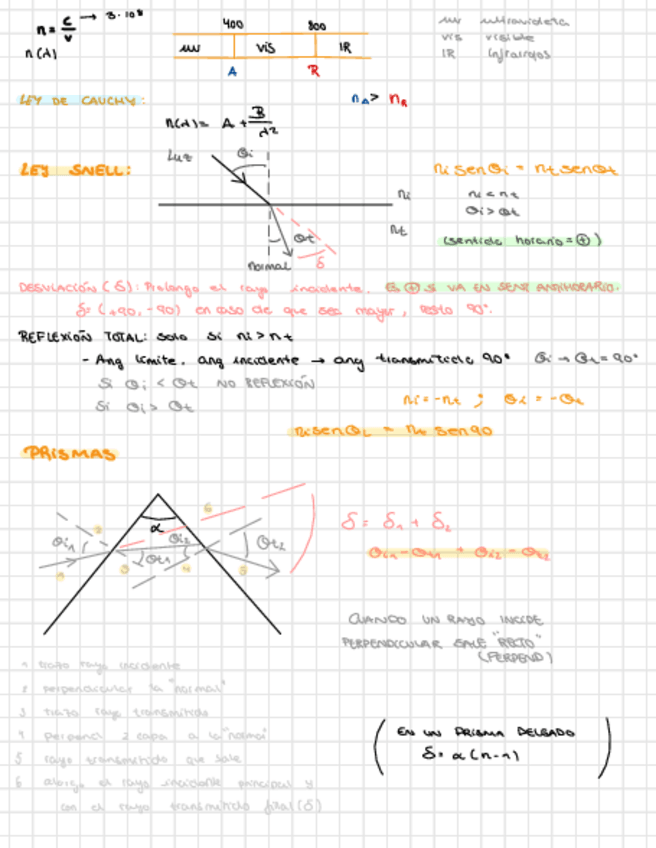 n = c/v → 3·10⁸
n(λ)
400 800
uv vis IR
A R
uv ultravioleta
vis visible
IR infrarrojos
LEY DE CAUCHY:
nA > nR
n(λ) = A + B/λ²
LEY SNELL:
Luz θi
ni
nt
θt
normal δ
ni senθi = nt senθt
ni < nt
θi > θt
(sentido horario = ⊕)
DESVIACIÓN (δ): Prolongo el rayo incidente. Es ⊕ SI VA EN SENT ANTIHORARIO.
δ = (+90, -90) en caso de que sea mayor, resto 90°.
REFLEXIÓN TOTAL: solo si ni > nt
- Ang límite. ang incidente → ang transmitido 90° θi → θt = 90°
Si θi < θt NO REFLEXIÓN
Si θi > θt
ni = -nt ; θi = -θt
ni senθL = nt sen90
PRISMAS
α
θi1 θt1 θi2 θt2
1 2 3 4 5 6
δ = δ1 + δ2
θi1 - θt1 + θi2 - θt2
CUANDO UN RAYO INCIDE
PERPENDICULAR SALE "RECTO"
(PERPEND)
1 trazo rayo incidente
2 perpendicular la "normal"
3 trazo rayo transmitido
4 perpend 2 capa a la "normal"
5 rayo transmitido que sale
6 alargo el rayo incidente principal y
con el rayo transmitido final (δ)
EN UN PRISMA DELGADO
δ = α (n-1)